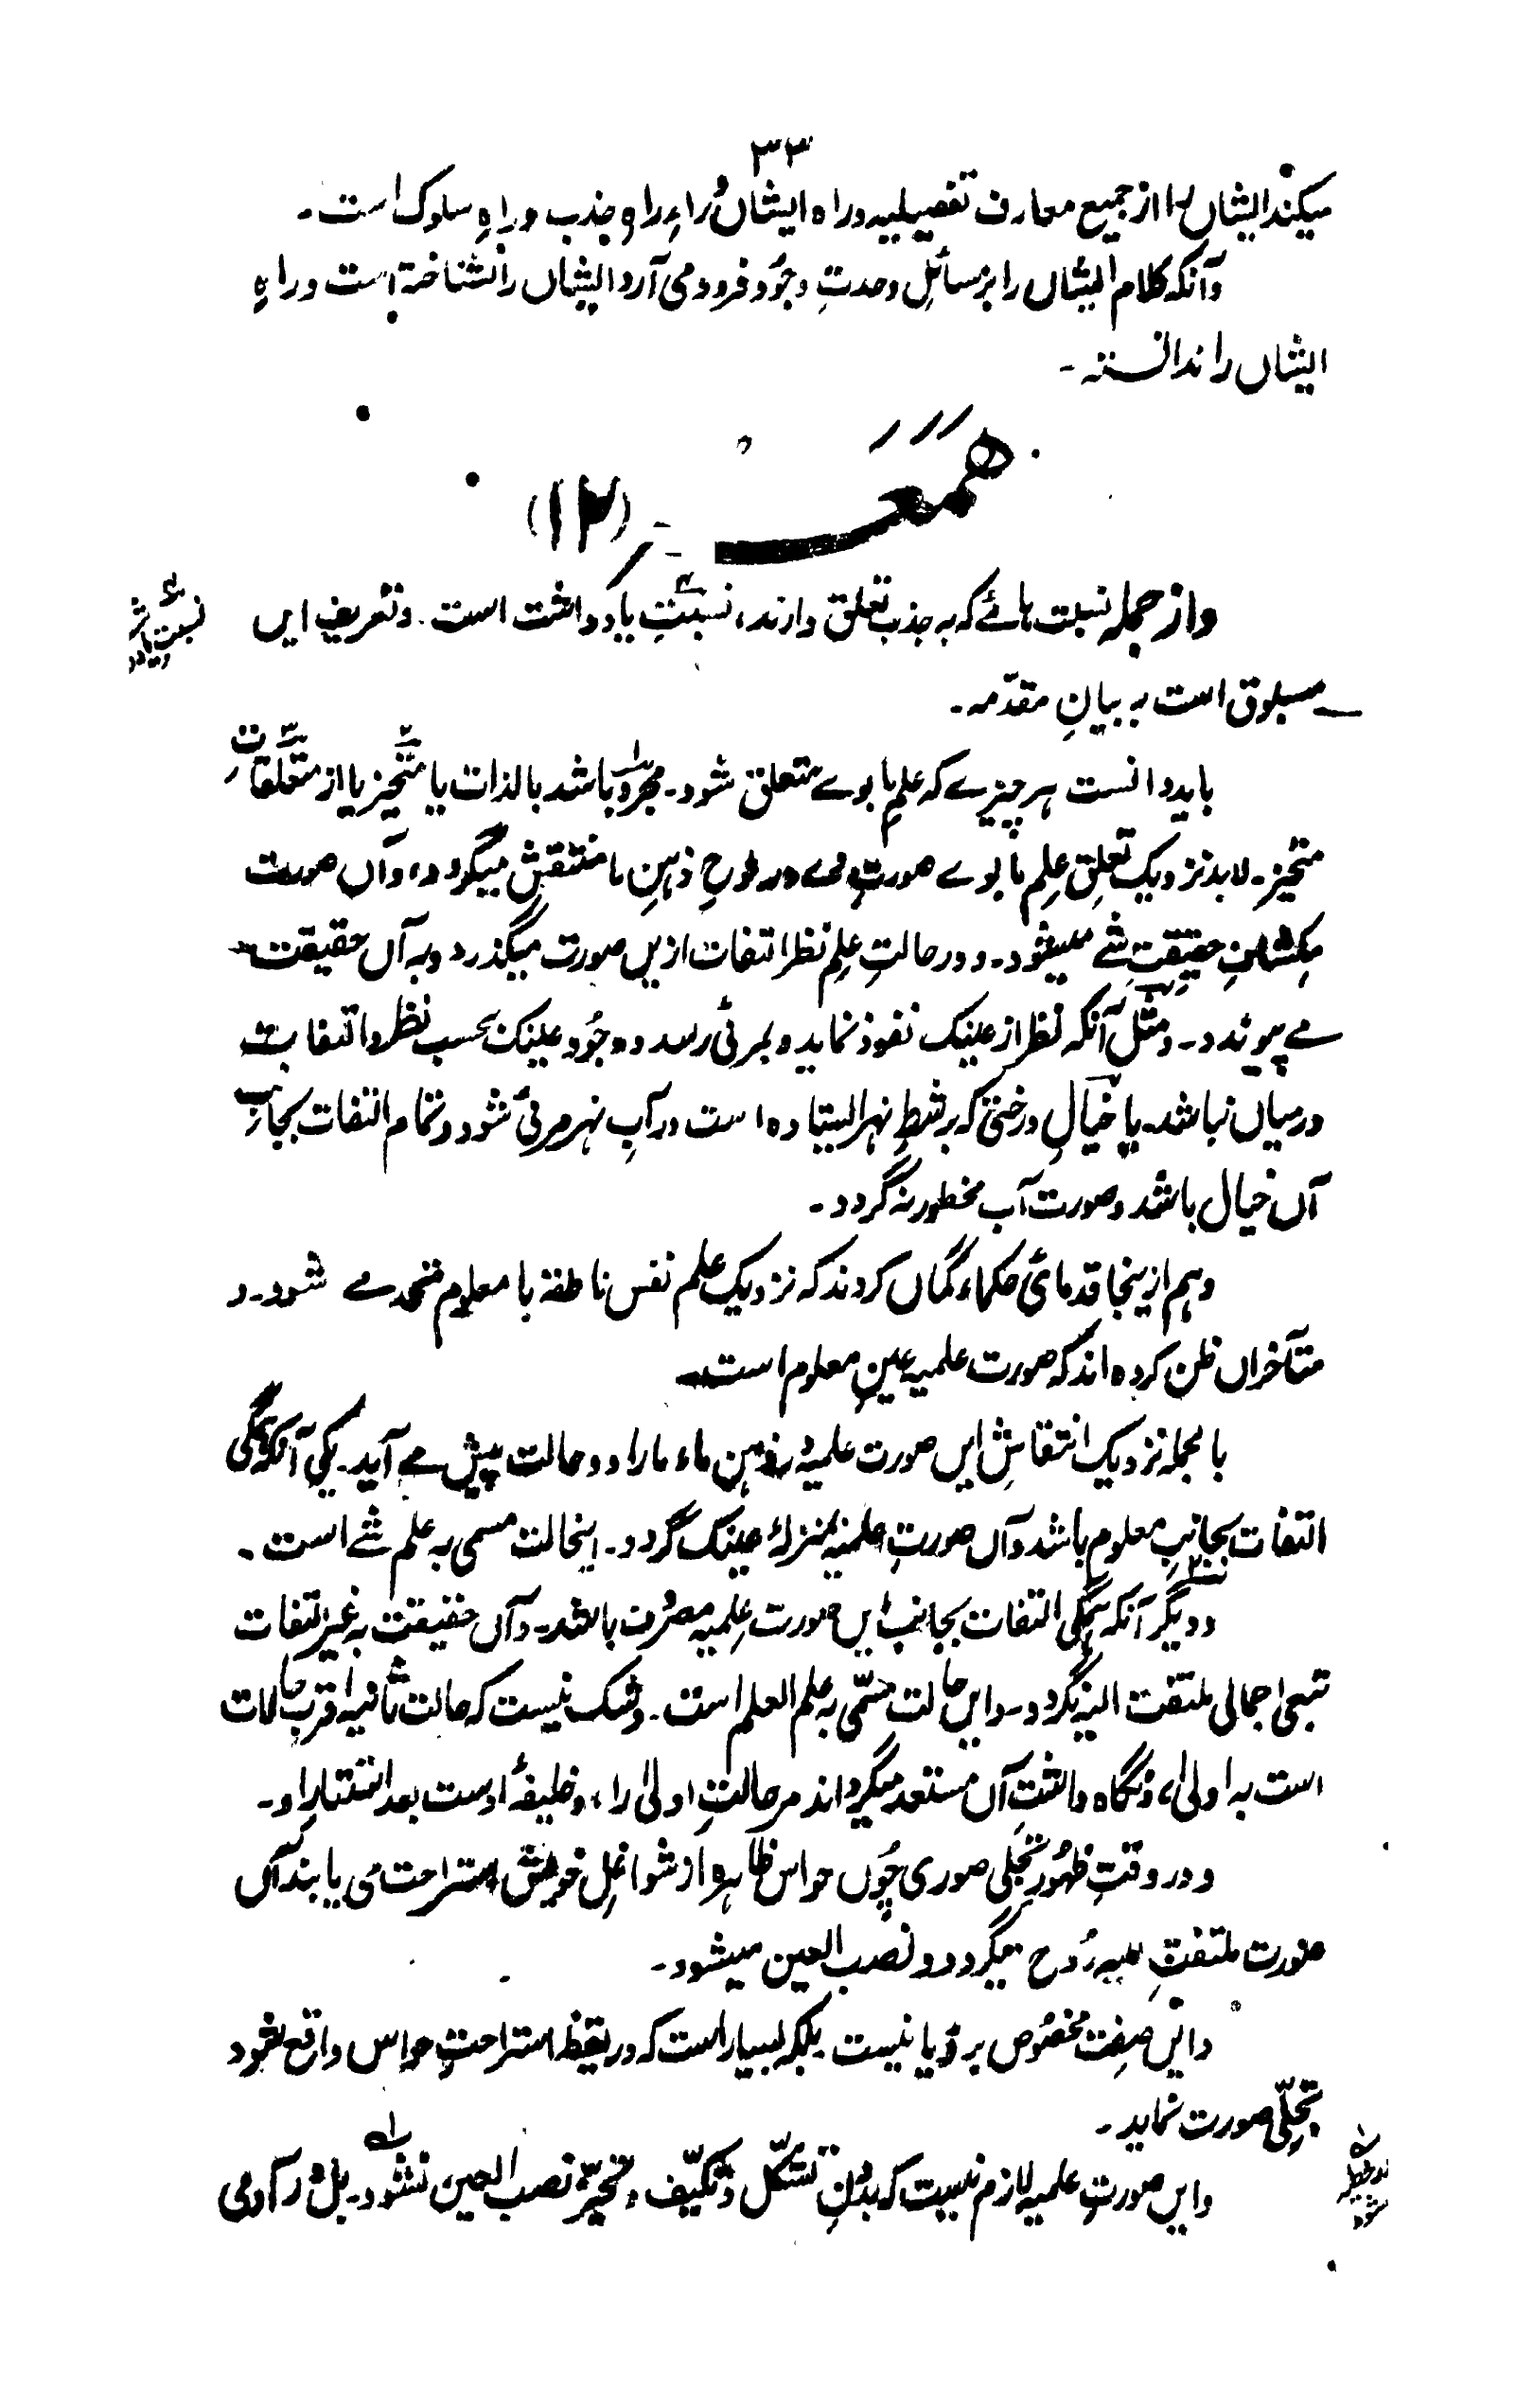 ۳۳
میکند ایشاں را از جمیع معارف تفصیلیہ و راہ ایشاں وراءِ راہِ جذب و راہِ سلوک است۔
وآنکہ کلام ایشاں را بر مسائلِ وحدتِ وجُود فرود می آرد ایشاں را نشناختہ است و راہِ
ایشاں را ندانستہ۔
ھمعہ (۱۲)
و از جملہ نسبت ہائے کہ بہ جذب تعلق دارند، نسبتِ یادداشت است۔ و تعریف ایں
نسبت یادداشت
مسبوق است بہ بیانِ مقدّمہ۔
باید دانست ہر چیزے کہ علمِ ما بوے متعلق شود۔ مجرد باشد بالذات یا متحیز یا از متعلقاتِ
متحیز۔ لابد نزدیک تعلقِ علمِ ما بوے صورتِ وے در لوحِ ذہنِ ما منتقش میگردد، و آں صورت
منکشفِ حقیقتِ شے میشود۔ و در حالتِ علم نظر التفات ازیں صورت میگذرد و بہ آں حقیقت
مے پیوندد۔ و مثل آنکہ نظر از عینک نفوذ نماید و بمرئی رسد و وجُود عینک بحسب نظر و التفات
درمیاں نباشد۔ یا خیالِ درختی کہ بر شطِ نہر ایستادہ است در آبِ نہر مرئی شود و تمام التفات بجانبِ
آں خیال باشد و صورت آب مخطور نہ گردد۔
و ہم ازینجا قدمائی حکماء گماں کردند کہ نزدیک علم نفس ناطقہ با معلوم متحد مے شود۔ و
متأخراں ظن کردہ اند کہ صورت علمیہ عینِ معلوم است
بالجملہ نزدیک انتقاشِ ایں صورت علمیہ در ذہنِ ما، ما را دو حالت پیش مے آید۔ یکی آنکہ ہمگی
التفات بجانبِ معلوم باشد و آں صورتِ علمیہ بمنزلۂ عینک گردد۔ اینحالت مسمی بہ علم شے است۔
و دیگر آنکہ ہمگی التفات بجانب ایں صورت علمیہ مصرُوف باشد۔ و آں حقیقت بہ غیر التفات
تبعی اجمالی ملتفت الیہ نگردد۔ و ایں حالت مسمّی بہ علم العلم است۔ و شک نیست کہ حالت ثانیہ اقرب حالات
است بہ اولیٰ، و نگاہ داشتِ آں مستعد میگرداند مر حالتِ اولیٰ را، و خلیفۂ اوست بعد استتارِ او۔
و در وقتِ ظہُورِ تجلی صوری چُوں حواس ظاہرہ از شواغلِ خویش استراحت می یابند آں
صورت ملتفتِ الیہ رُوح میگردد و نصب العین میشود۔
و ایں صفت مخصُوص بر رُؤیا نیست بلکہ بسیار است کہ در یقظہ استراحتِ حواس واقع شود
تجلّیِ صورت نماید۔
و ایں صورتِ علمیہ لازم نیست کہ بدُونِ تشکّل و تکیّف و تحیّز نصب العین نشود۔ بل در آدمی